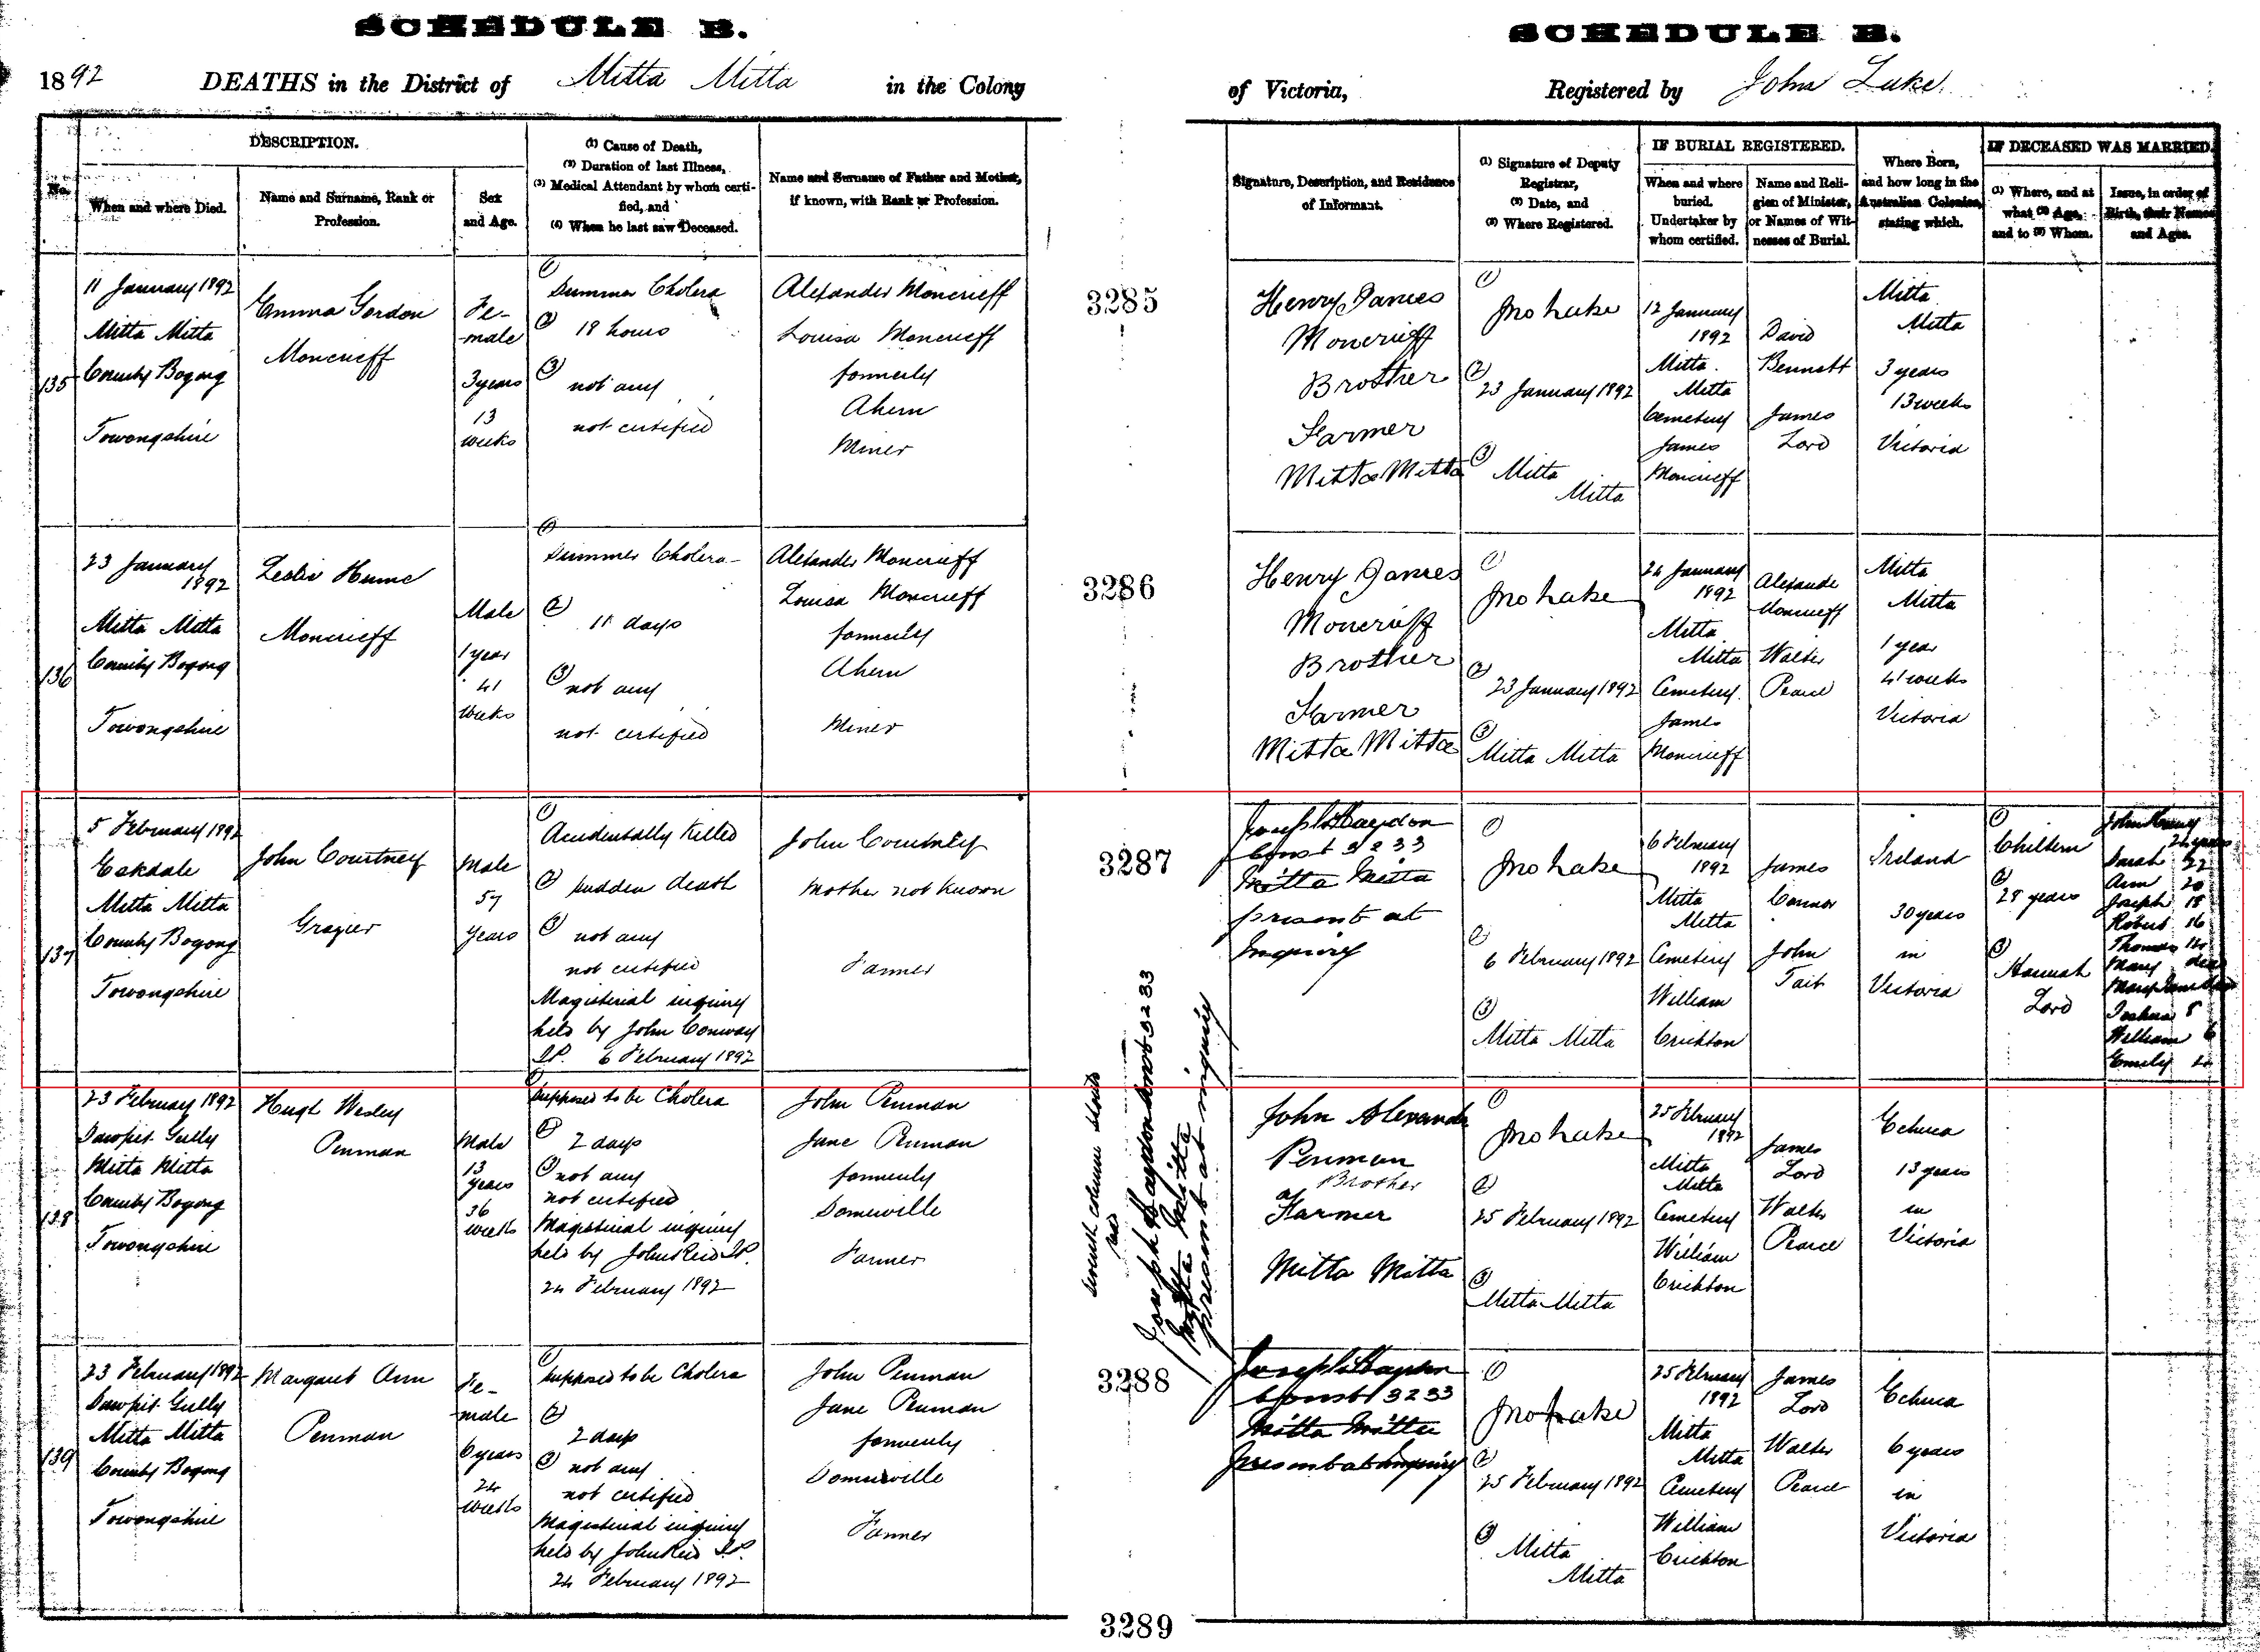 SCHEDULE B.
SCHEDULE B.
1892 DEATHS in the District of Mitta Mitta in the Colony
of Victoria, Registered by John Lake.
No.
DESCRIPTION.
When and where Died.
Name and Surname, Rank or
Profession.
Sex
and Age.
(1) Cause of Death,
(2) Duration of last Illness,
(3) Medical Attendant by whom certi-
fied, and
(4) When he last saw Deceased.
Name and Surname of Father and Mother,
if known, with Rank or Profession.
Signature, Description, and Residence
of Informant.
(1) Signature of Deputy
Registrar,
(2) Date, and
(3) Where Registered.
IF BURIAL REGISTERED.
When and where
buried.
Undertaker by
whom certified.
Name and Reli-
gion of Minister,
or Names of Wit-
nesses of Burial.
Where Born,
and how long in the
Australian Colonies,
stating which.
IF DECEASED WAS MARRIED.
(1) Where, and at
what (2) Age,
and to (3) Whom.
Issue, in order of
Birth, their Names
and Ages.
135
11 January 1892
Mitta Mitta
County Bogong
Towongshire
Emma Gordon
Moncrieff
Fe-
male
3 years
13
weeks
(1)
Summer Cholera
(2) 18 hours
(3)
not any
not certified
Alexander Moncrieff
Louisa Moncrieff
formerly
Ahern
Miner
3285
Henry James
Moncrieff
Brother
Farmer
Mitta Mitta
(1)
Jno Lake
(2)
23 January 1892
(3)
Mitta
Mitta
12 January
1892
Mitta
Mitta
Cemetery
James
Moncrieff
David
Bennett
James
Lord
Mitta
Mitta
3 years
13 weeks
Victoria
136
23 January
1892
Mitta Mitta
County Bogong
Towongshire
Leslie Hume
Moncrieff
Male
1 year
41
weeks
(1)
Summer Cholera
(2)
11 days
(3)
not any
not certified
Alexander Moncrieff
Louisa Moncrieff
formerly
Ahern
Miner
3286
Henry James
Moncrieff
Brother
Farmer
Mitta Mitta
(1)
Jno Lake
(2)
23 January 1892
(3)
Mitta Mitta
24 January
1892
Mitta
Mitta
Cemetery.
James
Moncrieff
Alexande
Moncrieff
Walter
Pearce
Mitta
Mitta
1 year
41 weeks
Victoria
137
5 February 1892
Eakdale
Mitta Mitta
County Bogong
Towongshire
John Courtney
Grazier
Male
57
years
(1)
Accidentally Killed
(2) Sudden death
(3)
not any
not certified
Magisterial inquiry
held by John Conway
J.P. 6 February 1892
John Courtney
Mother not known
Farmer
3287
Joseph Haydon
Const 3233
Mitta Mitta
present at
Inquiry
(1)
Jno Lake
(2)
6 February 1892
(3)
Mitta Mitta
6 February
1892
Mitta
Mitta
Cemetery
William
Crichton
James
Connor
John
Tait
Ireland
30 years
in
Victoria
(1)
Chiltern
(2)
28 years
(3)
Hannah
Lord
John Henry
24 years
Sarah 22
Ann 20
Joseph 18
Robert 16
Thomas 14
Mary dead
Mary Jane
Joshua 8
William 6
Emily
138
23 February 1892
Sawpit Gully
Mitta Mitta
County Bogong
Towongshire
Hugh Wesley
Penman
Male
13
years
36
weeks
(1)
Supposed to be Cholera
(2)
2 days
(3) not any
not certified
Magisterial inquiry
held by John Reid J.P.
24 February 1892
John Penman
Jane Penman
formerly
Somerville
Farmer
seventh column should
read
Joseph Haydon Const 3233
Mitta Mitta
present at inquiry
John Alexander
Penman
Brother
Farmer
Mitta Mitta
(1)
Jno Lake
(2)
25 February 1892
(3)
Mitta Mitta
25 February
1892
Mitta
Mitta
Cemetery
William
Crichton
James
Lord
Walter
Pearce
Echuca
13 years
in
Victoria
139
23 February 1892
Sawpit Gully
Mitta Mitta
County Bogong
Towongshire
Margaret Ann
Penman
Fe-
male
6 years
24
weeks
(1)
Supposed to be Cholera
(2)
2 days
(3) not any
not certified
Magisterial inquiry
held by John Reid J.P.
24 February 1892
John Penman
Jane Penman
formerly
Somerville
Farmer
3288
Joseph Haydon
Const 3233
Mitta Mitta
present at Inquiry
(1)
Jno Lake
(2)
25 February 1892
(3)
Mitta
Mitta
25 February
1892
Mitta
Mitta
Cemetery
William
Crichton
James
Lord
Walter
Pearce
Echuca
6 years
in
Victoria
3289